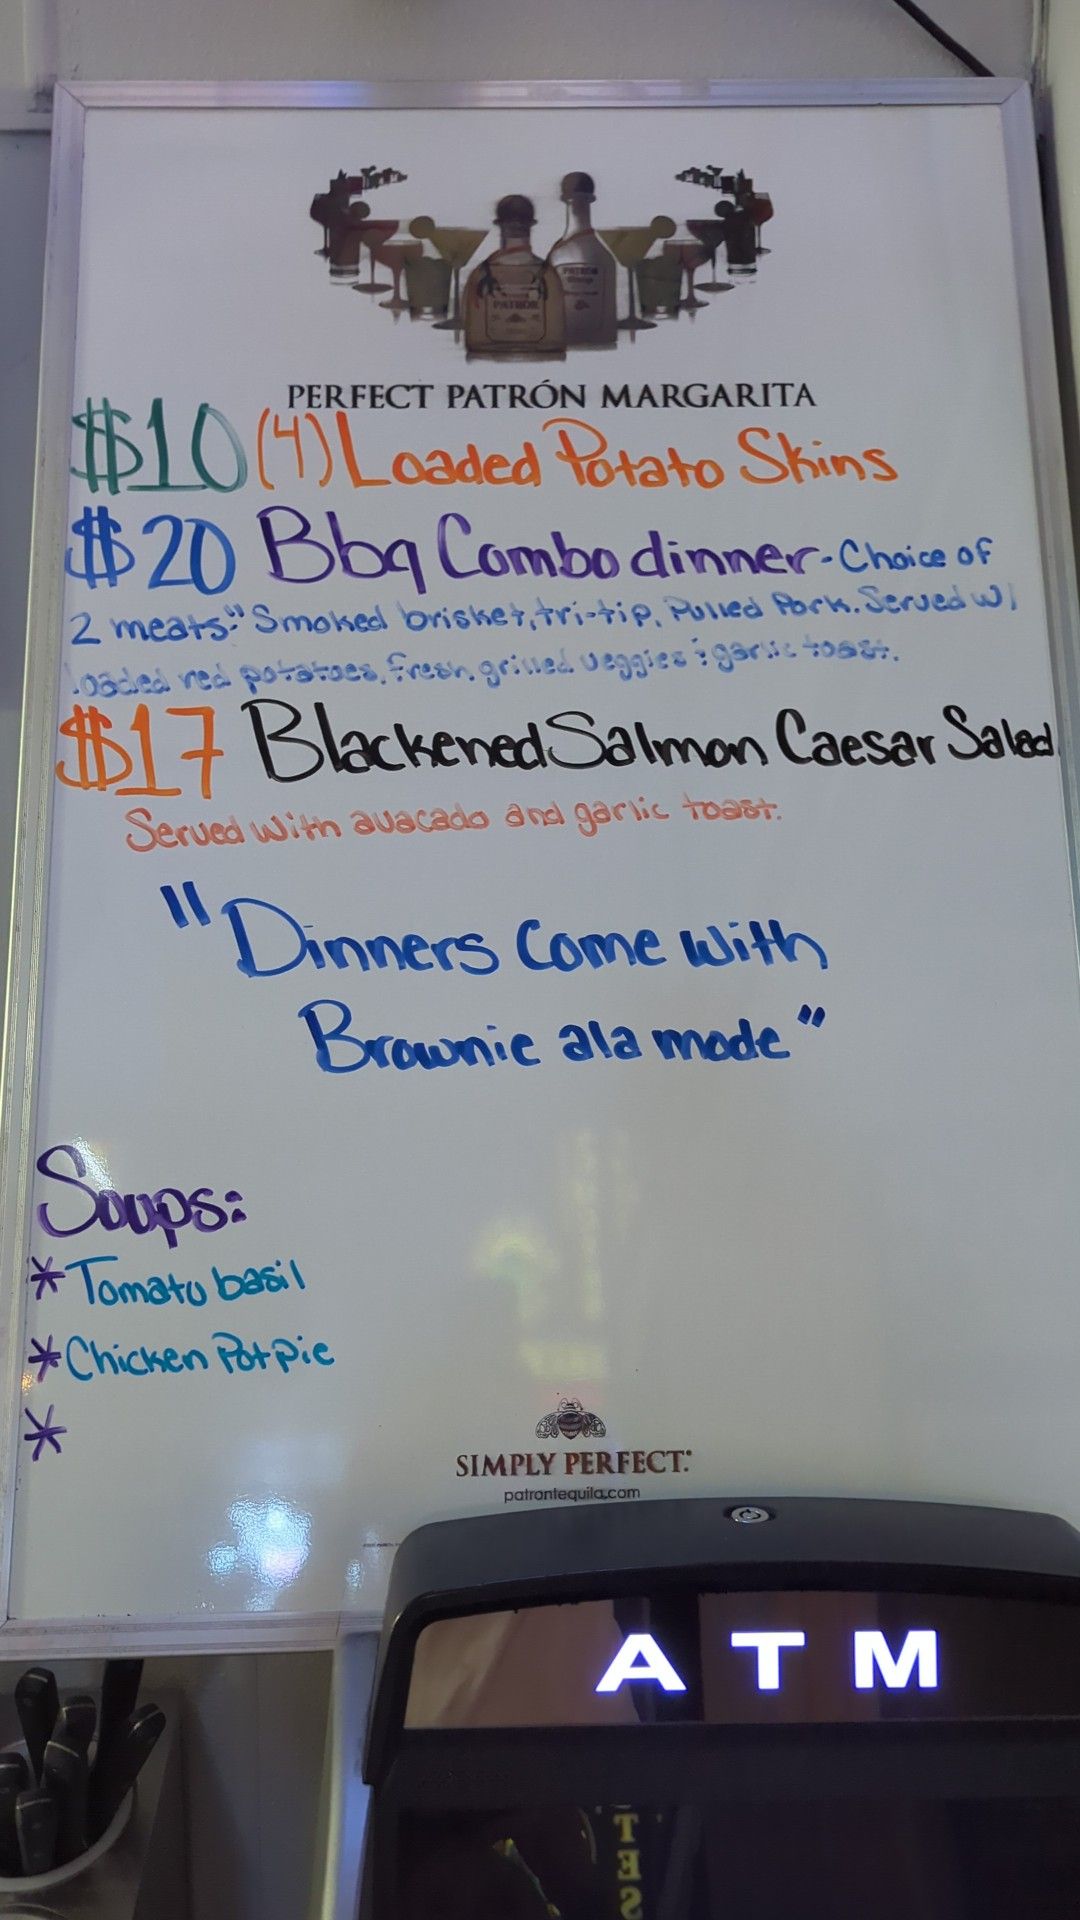 PATRÓN
PATRÓN
PERFECT PATRÓN MARGARITA
$10 (4) Loaded Potato Skins
$20 Bbq Combo dinner - Choice of
2 meats: "Smoked brisket, tri-tip, Pulled Pork. Served w/
loaded red potatoes, fresh grilled veggies & garlic toast.
$17 Blackened Salmon Caesar Salad
Served with avacado and garlic toast.
"Dinners Come with
Brownie ala mode"
Soups:
* Tomato basil
* Chicken Pot pie
*
SIMPLY PERFECT.
patrontequila.com
ATM